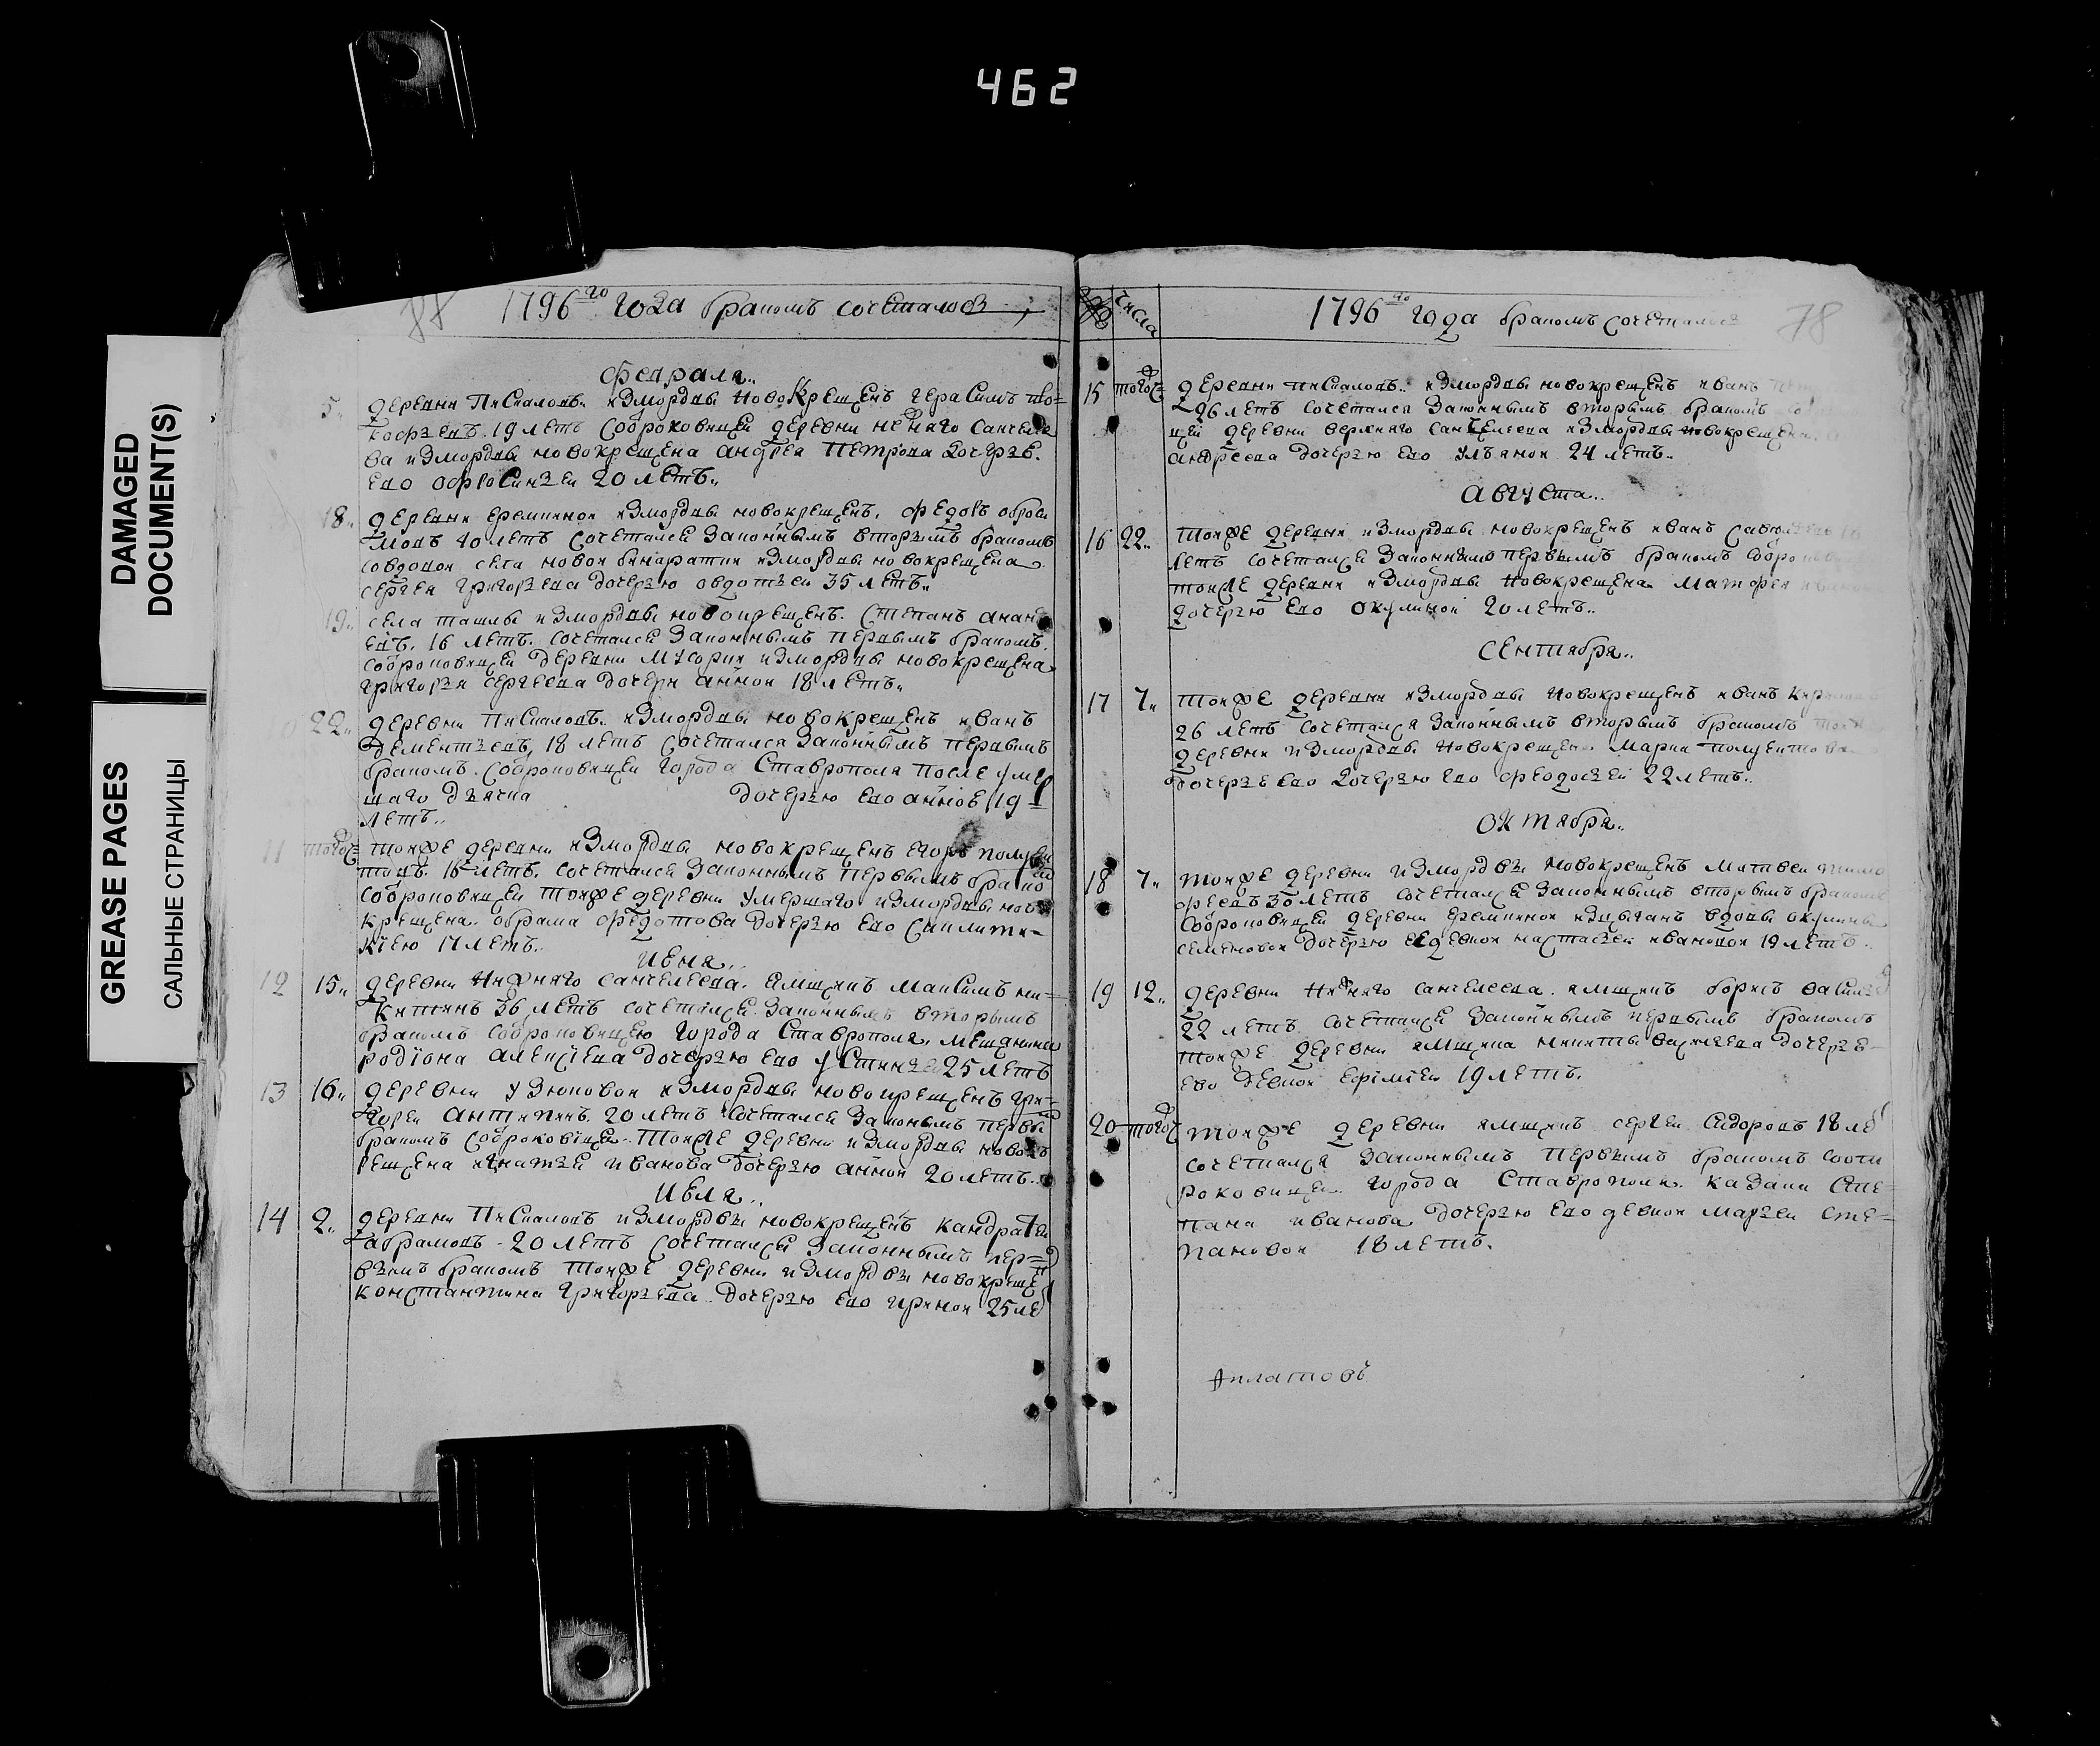 462
DAMAGED
DOCUMENT(S)
GREASE PAGES
САЛЬНЫЕ СТРАНИЦЫ
1796 го года бракомъ сочеталось
февраля
5 деревни Пискаловъ измордвы новокрещенъ герасимъ
19 летъ соброковицей деревни нижняго санчеле
ва измордвы новокрещена андрея Петрова дочерью
ево офросиньей 20 летъ
18 деревни еремкиной измордвы новокрещенъ федотъ
40 летъ сочетался законнымъ вторымъ бракомъ
совдовой села новой бинаратки измордвы новокрещена
сергея григорьева дочерью овдотьей 35 летъ
19 села ташлы измордвы новокрещенъ Степанъ анан
евъ 16 летъ сочетался законнымъ первымъ бракомъ
соброковицей деревни Мусорки измордвы новокрещена
григорья сергеева дочери анной 18 летъ
22 деревни Пискаловъ измордвы новокрещенъ иванъ
дементьевъ 18 летъ сочетался законнымъ первымъ
бракомъ соброковицей города Ставрополя после умер
шаго дьячка дочерью ево анной 19
летъ
11 тогож тойже деревни измордвы новокрещенъ егоръ полуек
товъ 16 летъ сочетался законнымъ первымъ брако
соброковицей тойже деревни умершаго измордвы ново
крещена абрама федотова дочерью ево синклити
киею 17 летъ
июня
12 15 деревни Нижняго санчелеева ямщикъ максимъ ни
китинъ 36 летъ сочетался законнымъ вторымъ
бракомъ соброковицею города Ставрополя мещанина
родіона алексіева дочерью ево устиньей 25 летъ
13 16 деревни узюковой измордвы новокрещенъ гри
горей антипинъ 20 летъ сочетался законымъ первы
бракомъ соброковіцей тойже деревни измордвы новок
рещена игнатья иванова дочерью анной 20 летъ
июля
14 2 деревни Пискаловъ измордвы новокрещенъ кандратей
абрамовъ 20 летъ сочетался законнымъ пер
вымъ бракомъ тойже деревни измордвы новокреще
константина григорьева дочерью ево ириной 25 ле
числа
1796 го года бракомъ сочеталось 78
15 тогож деревни Пискаловъ измордвы новокрещенъ иванъ
26 летъ сочетался законнымъ вторымъ бракомъ
цей деревни верхняго санчелеева измордвы новокрещена
андреева дочерью ево ульяной 24 летъ
Августа
16 22 тойже деревни измордвы новокрещенъ иванъ
летъ сочетался законнымъ первымъ бракомъ
тойже деревни измордвы новокрещена матфея
дочерью ево окулиной 20 летъ
Сентября
17 7 тойже деревни измордвы новокрещенъ иванъ
26 летъ сочетался законнымъ вторымъ бракомъ
деревни измордвы новокрещена марка полуектова
дочерью ево феодосьей 22 летъ
Октября
18 7 тойже деревни измордвы новокрещенъ матвей тимо
феевъ 30 летъ сочетался законнымъ вторымъ бракомъ
соброковицей деревни еремкиной изцыганъ вдовы окулины
семеновой дочерью еедевкой настасьей ивановой 19 летъ
19 12 деревни Нижняго санчелеева ямщикъ борисъ васильев
22 летъ сочетался законнымъ первымъ бракомъ
тойже деревни ямщика никиты дочерью
ево девкой ефіміей 19 летъ
20 тогож тойже деревни ямщикъ сергей сидоровъ 18 ле
сочетался законнымъ первымъ бракомъ соот
роковицей города Ставрополя казака сте
пана иванова дочерью ево девкой марьей сте
пановой 18 летъ